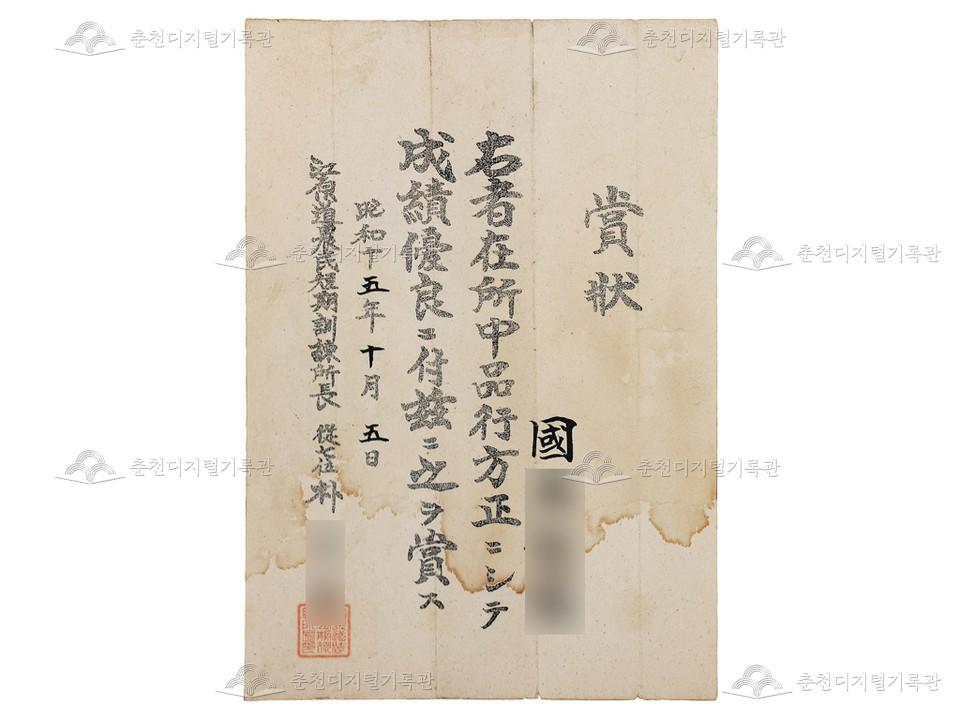 賞狀
國
右者在所中品行方正ニシテ
成績優良ニ付茲ニ之ヲ賞ス
昭和十五年十月五日
江原道農民短期訓練所長 從七位 朴
춘천디지털기록관
춘천디지털기록관
춘천디지털기록관
춘천디지털기록관
춘천디지털기록관
춘천디지털기록관
춘천디지털기록관
춘천디지털기록관